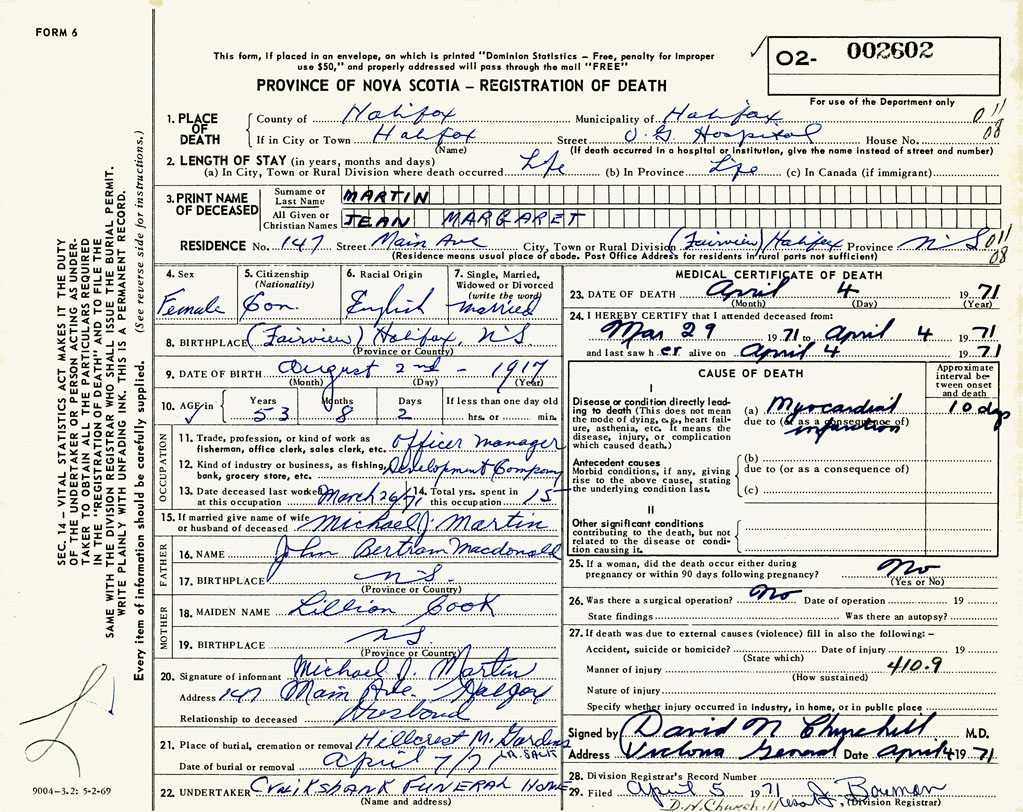 FORM 6
This form, if placed in an envelope, on which is printed "Dominion Statistics – Free, penalty for improper
use $50," and properly addressed will pass through the mail "FREE"
02- 002602
PROVINCE OF NOVA SCOTIA – REGISTRATION OF DEATH
For use of the Department only
1. PLACE OF DEATH
County of Halifax Municipality of Halifax 011
If in City or Town Halifax Street V.G. Hospital House No. 08
(Name) (If death occurred in a hospital or institution, give the name instead of street and number)
2. LENGTH OF STAY (in years, months and days)
(a) In City, Town or Rural Division where death occurred Life (b) In Province Life (c) In Canada (if immigrant)
3. PRINT NAME OF DECEASED
Surname or Last Name MARTIN
All Given or Christian Names JEAN MARGARET
RESIDENCE No. 147 Street Main Ave City, Town or Rural Division (Fairview) Halifax Province N S 011
(Residence means usual place of abode. Post Office Address for residents in rural parts not sufficient) 08
SEC. 14 – VITAL STATISTICS ACT MAKES IT THE DUTY
OF THE UNDERTAKER OR PERSON ACTING AS UNDER-
TAKER TO OBTAIN ALL THE PARTICULARS REQUIRED
IN THE "REGISTRATION OF DEATH" AND TO FILE THE
SAME WITH THE DIVISION REGISTRAR WHO SHALL ISSUE THE BURIAL PERMIT.
WRITE PLAINLY WITH UNFADING INK. THIS IS A PERMANENT RECORD.
Every item of information should be carefully supplied. (See reverse side for instructions.)
4. Sex
Female
5. Citizenship
(Nationality)
Can.
6. Racial Origin
English
7. Single, Married,
Widowed or Divorced
(write the word)
Married
8. BIRTHPLACE (Fairview) Halifax, N S
(Province or Country)
9. DATE OF BIRTH August 2nd - 1917
(Month) (Day) (Year)
10. AGE in Years Months Days If less than one day old
53 8 2 hrs. or min.
OCCUPATION
11. Trade, profession, or kind of work as
fisherman, office clerk, sales clerk, etc. Officer manager
12. Kind of industry or business, as fishing,
bank, grocery store, etc. Development Company
13. Date deceased last worked
at this occupation March 29/71
14. Total yrs. spent in
this occupation 15
15. If married give name of wife
or husband of deceased Michael J. Martin
FATHER
16. NAME John Bertram Macdonald
17. BIRTHPLACE N S.
(Province or Country)
MOTHER
18. MAIDEN NAME Lillian Cook
19. BIRTHPLACE N S
(Province or Country)
20. Signature of informant Michael J. Martin
Address 147 Main Ave. Halifax
Relationship to deceased Husband
21. Place of burial, cremation or removal Hillcrest M. Gardens
LR. SACK
Date of burial or removal April 7/71
22. UNDERTAKER Cruikshank FUNERAL HOME
(Name and address)
9004-3.2: 5-2-69
MEDICAL CERTIFICATE OF DEATH
23. DATE OF DEATH April 4 1971
(Month) (Day) (Year)
24. I HEREBY CERTIFY that I attended deceased from:
Mar 29 1971 to April 4 1971
and last saw her alive on April 4 1971
CAUSE OF DEATH
Approximate
interval be-
tween onset
and death
I
Disease or condition directly lead-
ing to death (This does not mean
the mode of dying, e.g., heart fail-
ure, asthenia, etc. It means the
disease, injury, or complication
which caused death.)
(a) Myocardial 10 days
due to (or as a consequence of)
infarction
Antecedent causes
Morbid conditions, if any, giving
rise to the above cause, stating
the underlying condition last.
(b)
due to (or as a consequence of)
(c)
II
Other significant conditions
contributing to the death, but not
related to the disease or condi-
tion causing it.
25. If a woman, did the death occur either during
pregnancy or within 90 days following pregnancy? No
(Yes or No)
26. Was there a surgical operation? No Date of operation 19
State findings Was there an autopsy?
27. If death was due to external causes (violence) fill in also the following: –
Accident, suicide or homicide? Date of injury 19
(State which)
Manner of injury 410.9
(How sustained)
Nature of injury
Specify whether injury occurred in industry, in home, or in public place
Signed by David N Churchill M.D.
Address Victoria General Date April 4 1971
28. Division Registrar's Record Number
29. Filed April 5 1971 J. Bowman
D.N. Churchill Division Registrar